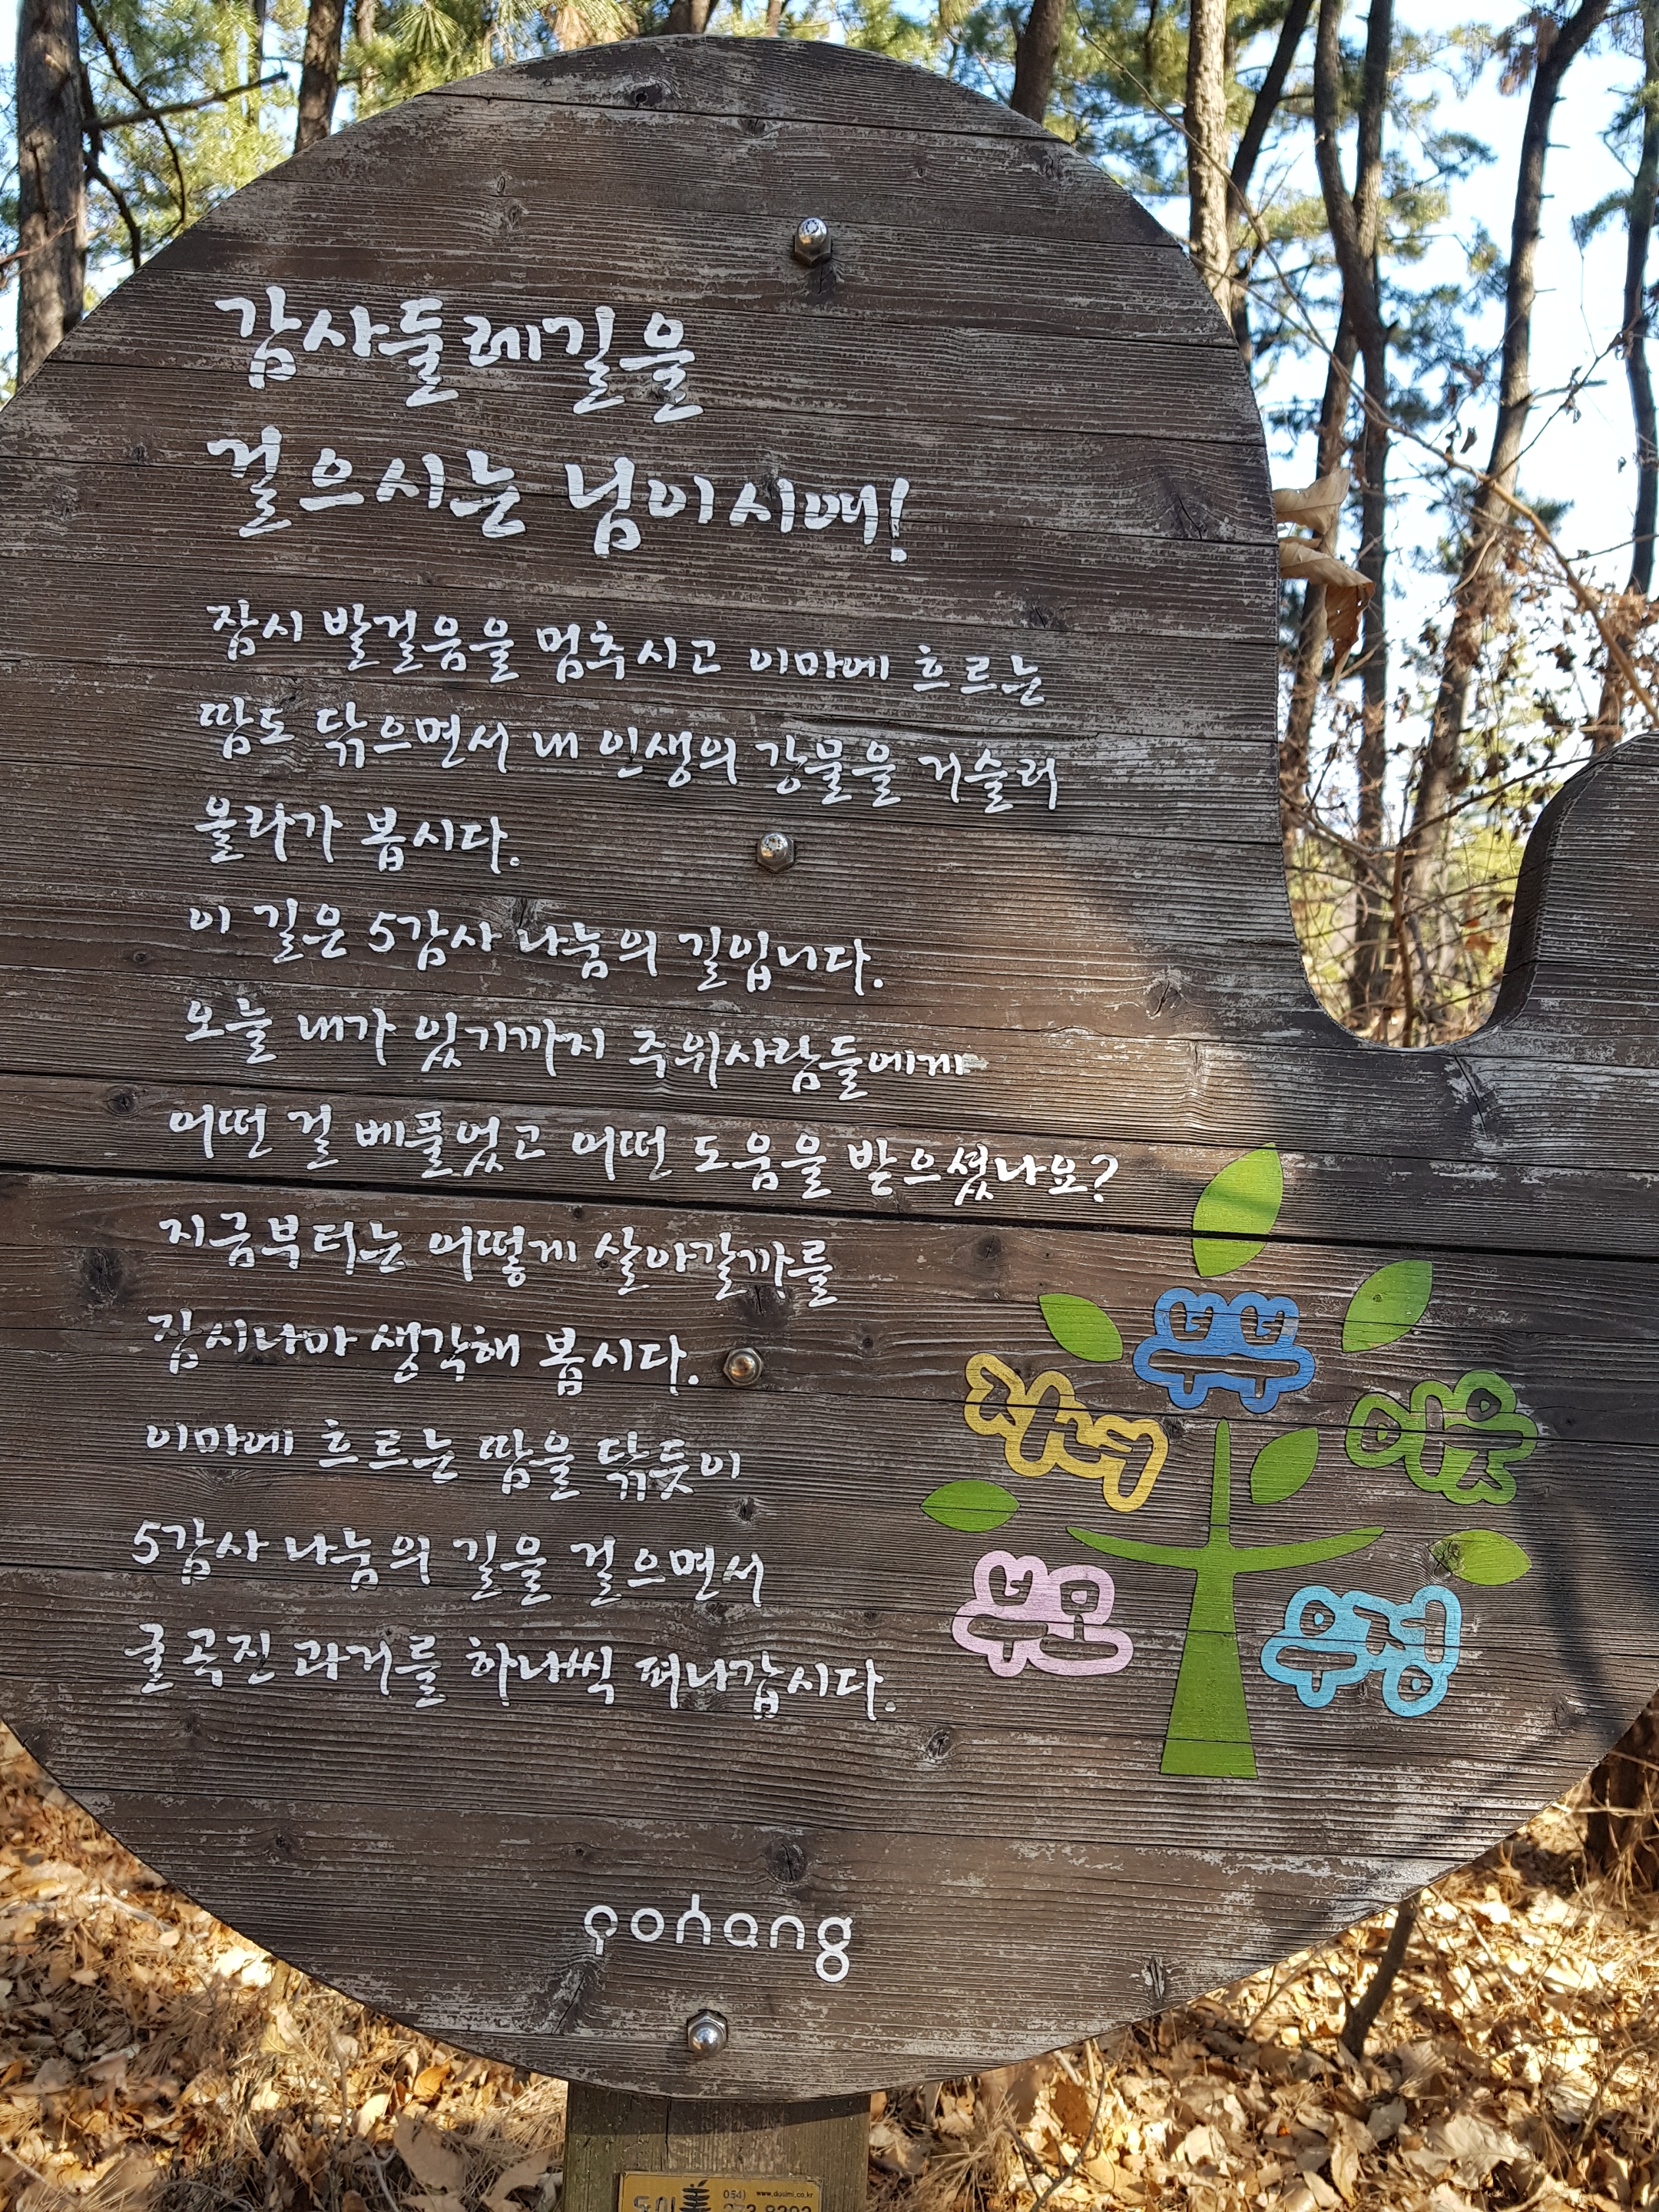 감사둘레길을
걸으시는 님이시여!
잠시 발걸음을 멈추시고 이마에 흐르는
땀도 닦으면서 내 인생의 강물을 거슬러
올라가 봅시다.
이 길은 5감사 나눔의 길입니다.
오늘 내가 있기까지 주위사람들에게
어떤 걸 베풀었고 어떤 도움을 받으셨나요?
지금부터는 어떻게 살아갈까를
잠시나마 생각해 봅시다.
이마에 흐르는 땀을 닦듯이
5감사 나눔의 길을 걸으면서
굴곡진 과거를 하나씩 펴나갑시다.
부부
자녀
이웃
부모
우정
pohang
054)
www.duoimi.co.kr